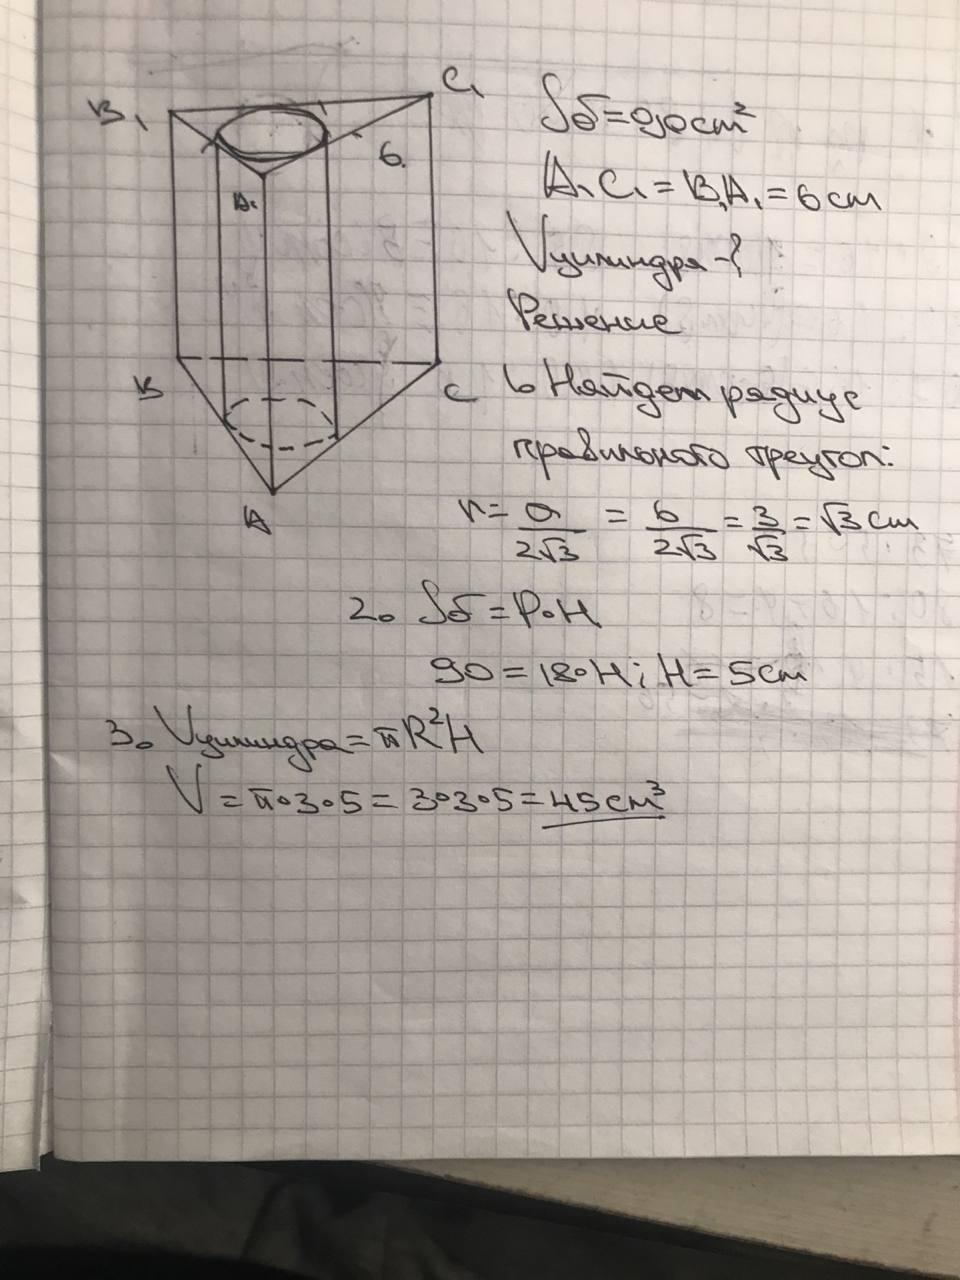 B₁
C₁
6.
A₁
B
C
A
Sб=90cm²
A₁C₁=B₁A₁=6cm
Vцилиндра-?
Решение
1. Найдем радиус
правильного треугол:
r=a/2√3 = 6/2√3 = 3/√3 = √3 cm
2. Sб=P·H
90=18·H; H=5cm
3. Vцилиндра=πR²H
V=π·3·5=3·3·5=45cm³